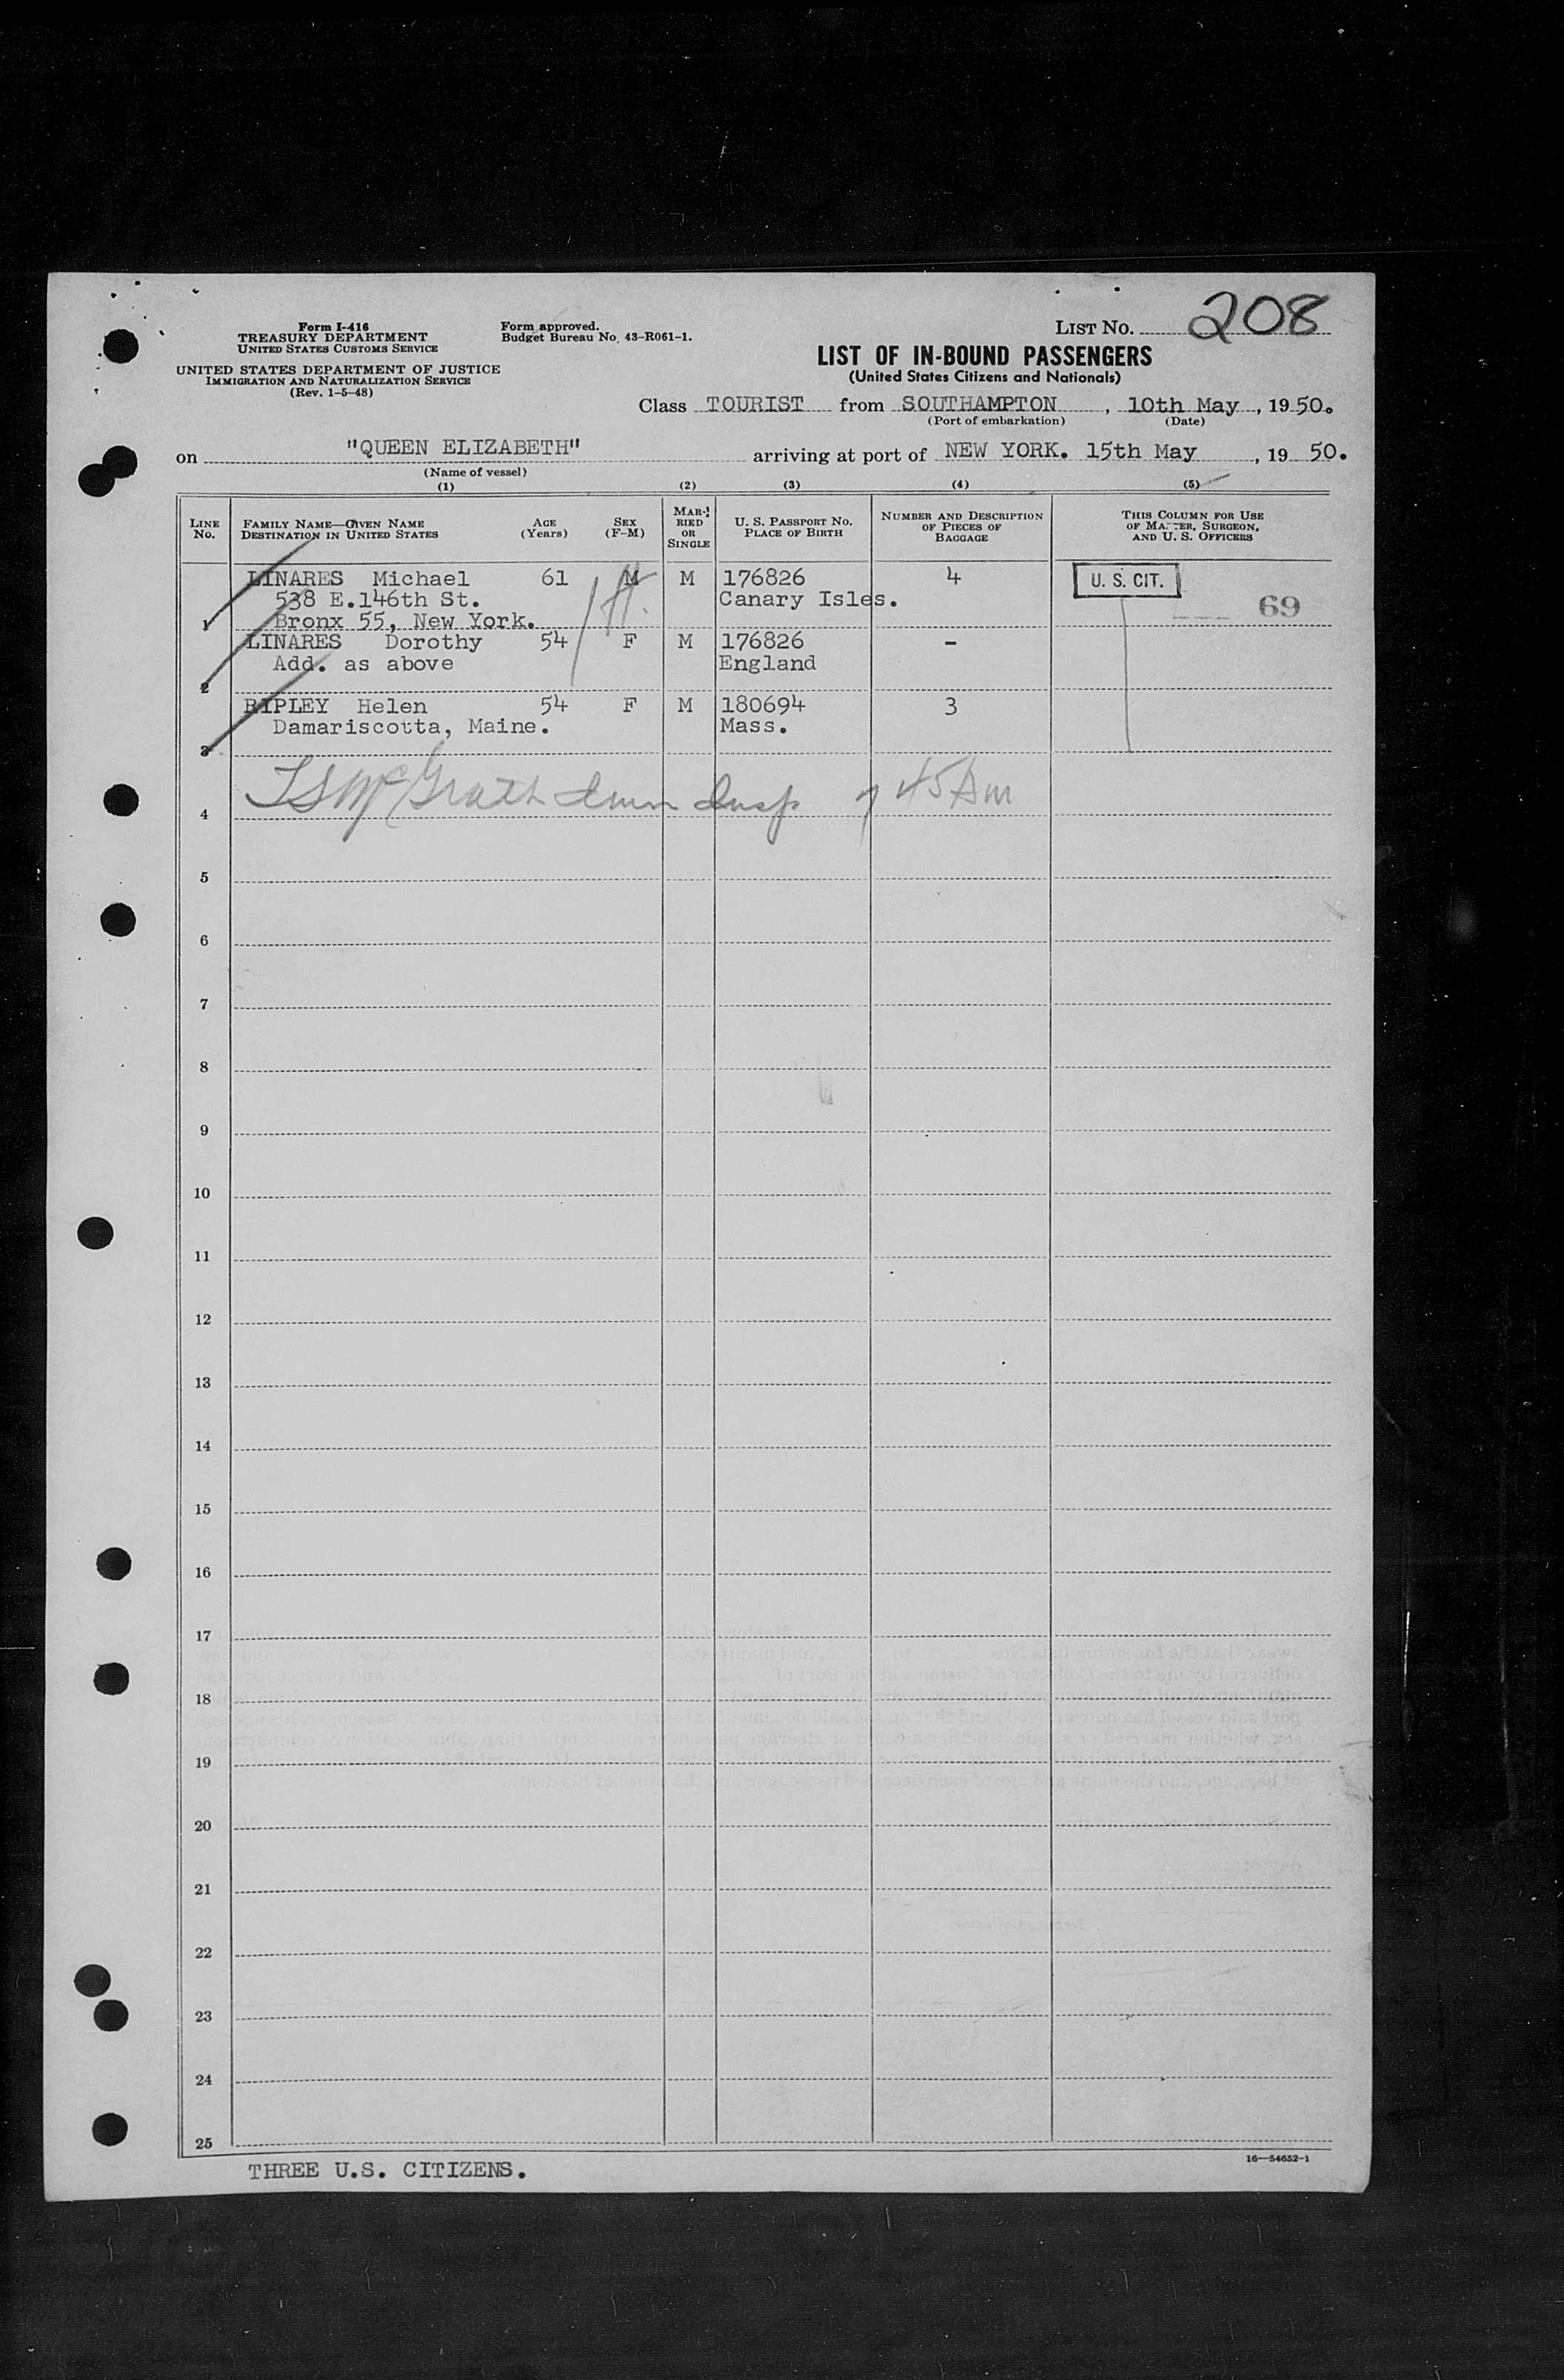 Form I-416
TREASURY DEPARTMENT
UNITED STATES CUSTOMS SERVICE
UNITED STATES DEPARTMENT OF JUSTICE
IMMIGRATION AND NATURALIZATION SERVICE
(Rev. 1-5-48)
Form approved.
Budget Bureau No. 43-R061-1.
LIST NO. 208
LIST OF IN-BOUND PASSENGERS
(United States Citizens and Nationals)
Class TOURIST from SOUTHAMPTON, 10th May, 1950.
(Port of embarkation) (Date)
on "QUEEN ELIZABETH" arriving at port of NEW YORK. 15th May, 19 50.
(Name of vessel)
(1) (2) (3) (4) (5)
LINE NO. FAMILY NAME—GIVEN NAME DESTINATION IN UNITED STATES AGE (Years) SEX (F-M) MARRIED OR SINGLE U. S. PASSPORT NO. PLACE OF BIRTH NUMBER AND DESCRIPTION OF PIECES OF BAGGAGE THIS COLUMN FOR USE OF MASTER, SURGEON, AND U. S. OFFICERS
LINARES Michael 61 M M 176826 4 U. S. CIT.
538 E.146th St. Canary Isles. 69
1 Bronx 55, New York.
LINARES Dorothy 54 F M 176826 -
Add. as above England
2
RIPLEY Helen 54 F M 180694 3
Damariscotta, Maine. Mass.
3
4 McGrath Imm Insp 7 45 Am
5
6
7
8
9
10
11
12
13
14
15
16
17
18
19
20
21
22
23
24
25
THREE U.S. CITIZENS.
16—54652-1